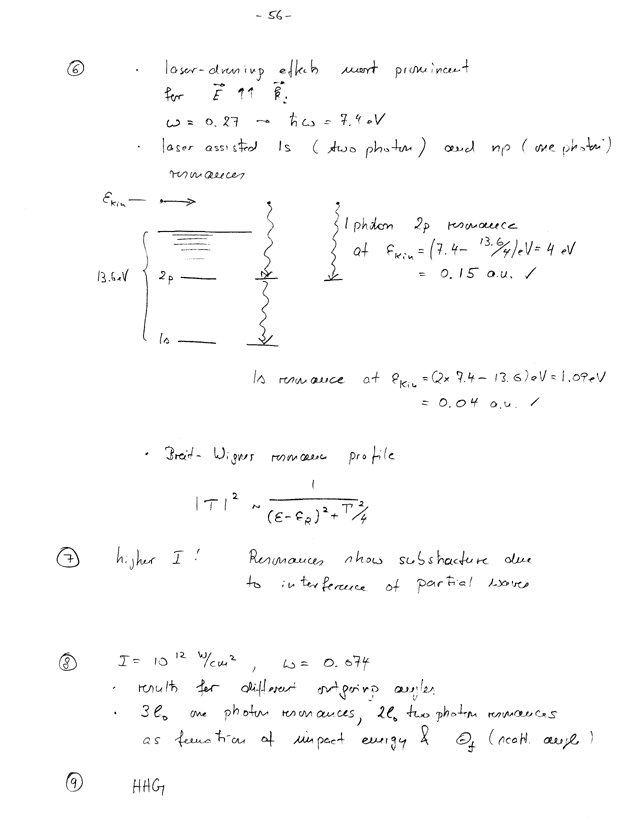 - 56 -
⑥ · laser-driving effects most prominent
for E⃗ ↑↑ k⃗:
ω = 0.27 → ħω = 7.4 eV
· laser assisted 1s (two photon) and np (one photon)
resonances
Ekin
1 photon 2p resonance
at εkin = (7.4 - 13.6/4) eV = 4 eV
= 0.15 a.u. ✓
13.6eV
2p
1s
1s resonance at εkin = (2x 7.4 - 13.6) eV = 1.09 eV
= 0.04 a.u. ✓
· Breit-Wigner resonance profile
|T|² ~ 1/((ε-εR)² + Γ²/4)
⑦ higher I! Resonances show substructure due
to interference of partial waves
⑧ I = 10¹² W/cm², ω = 0.074
· results for different outgoing angles
· 3l₀ one photon resonances, 2l₀ two photon resonances
as function of impact energy & Θf (scatt. angle)
⑨ HHG